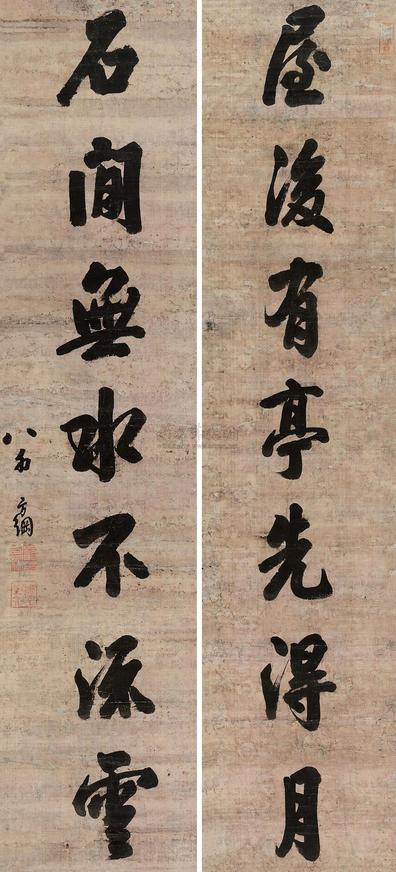 屋後有亭先得月
石間無水不流雲
方綱